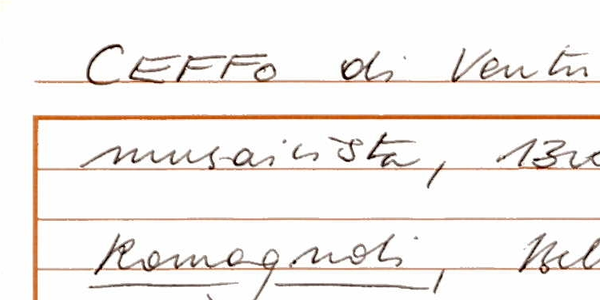 CEFFO di Ventu
musaicista, 13
Romagnoli,